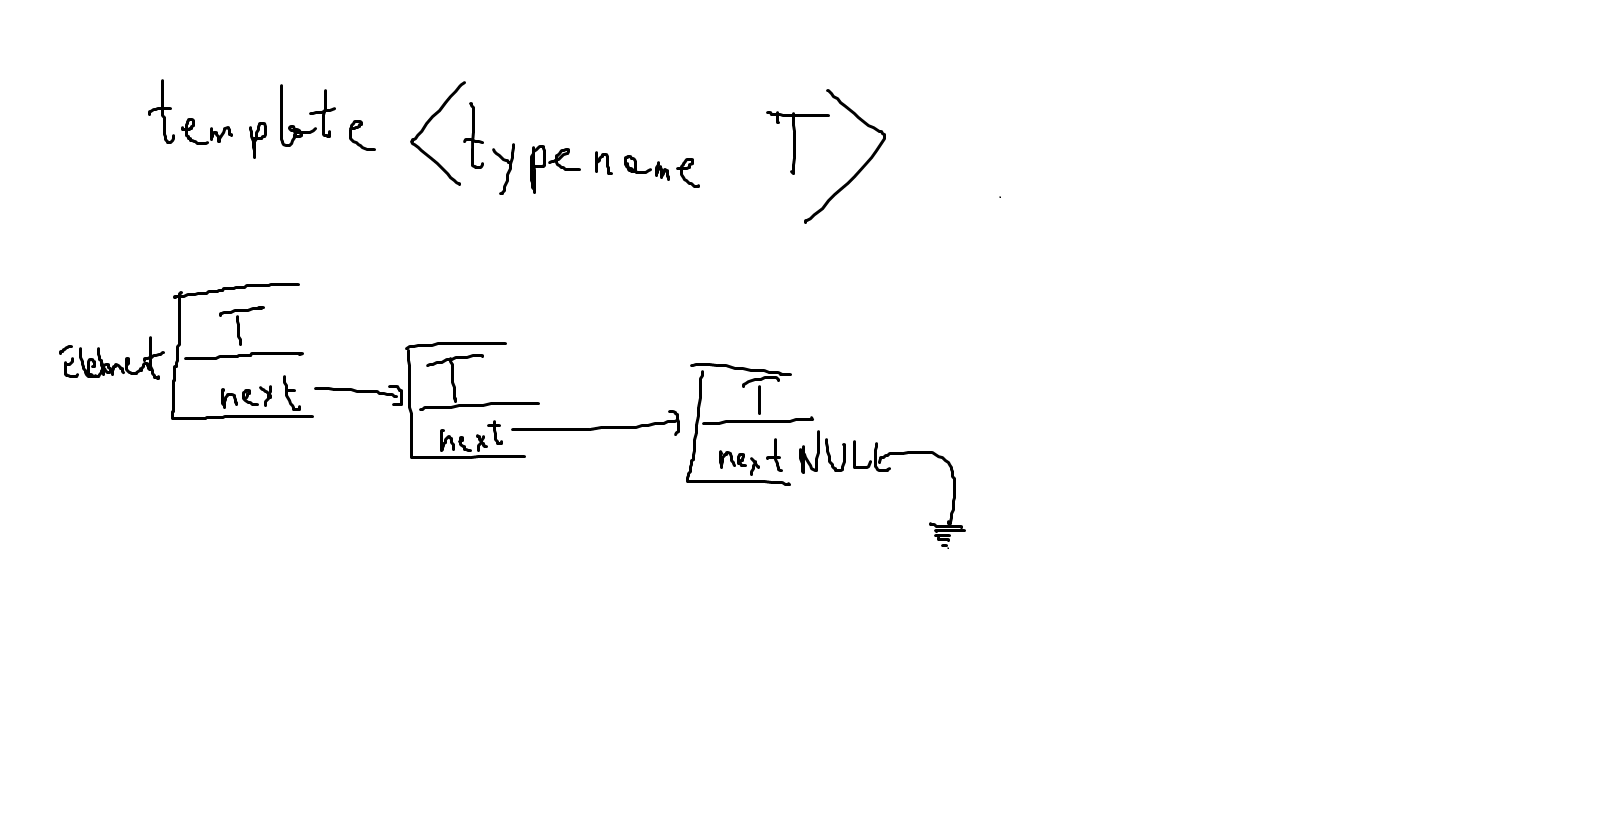 template <typename T>
T
Element
next
T
next
T
next NULL